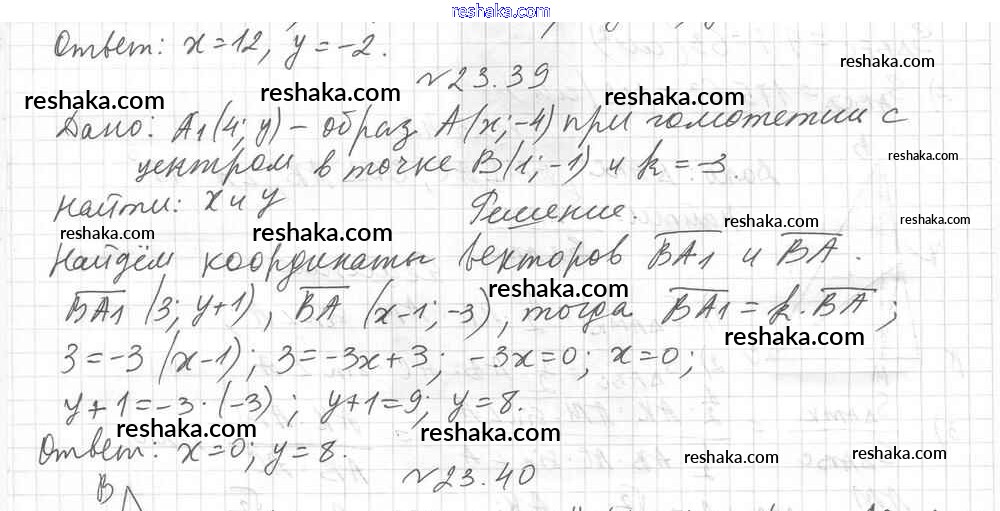 reshaka.com
Ответ: x=12, y=-2.
№23.39
reshaka.com
reshaka.com reshaka.com reshaka.com
Дано: A1(4; y) – образ A(x; -4) при гомотетии с
центром в точке B(1; -1) и k = -3.
reshaka.com
Найти: x и y Решение.
reshaka.com
reshaka.com reshaka.com
Найдём координаты векторов BA1 и BA.
reshaka.com
BA1 (3; y+1), BA (x-1; -3), тогда BA1 = k·BA;
reshaka.com
3=-3(x-1); 3=-3x+3; -3x=0; x=0;
y+1=-3·(-3); y+1=9; y=8.
reshaka.com reshaka.com
Ответ: x=0; y=8.
reshaka.com reshaka.com
№23.40
B